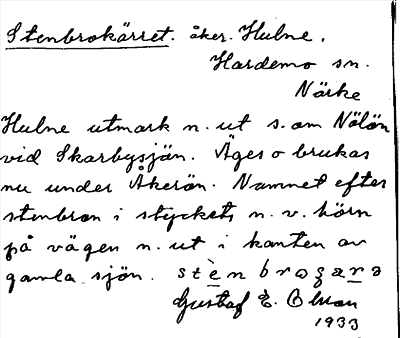 Stenbrokärret. åker. Hulne.
Hardemo sn.
Närke
Hulne utmark n. ut s. om Nölön
vid Skarbysjön. Äges o brukas
nu under Åkerön. Namnet efter
stenbron i stycket, n. v. hörn
på vägen n. ut i kanten av
gamla sjön.
Gustaf E. Olsson
1933